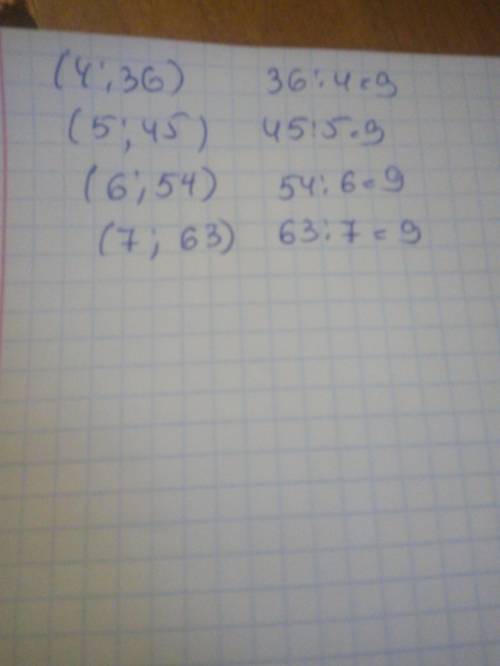 (4; 36) 36:4=9
(5; 45) 45:5=9
(6; 54) 54:6=9
(7; 63) 63:7=9